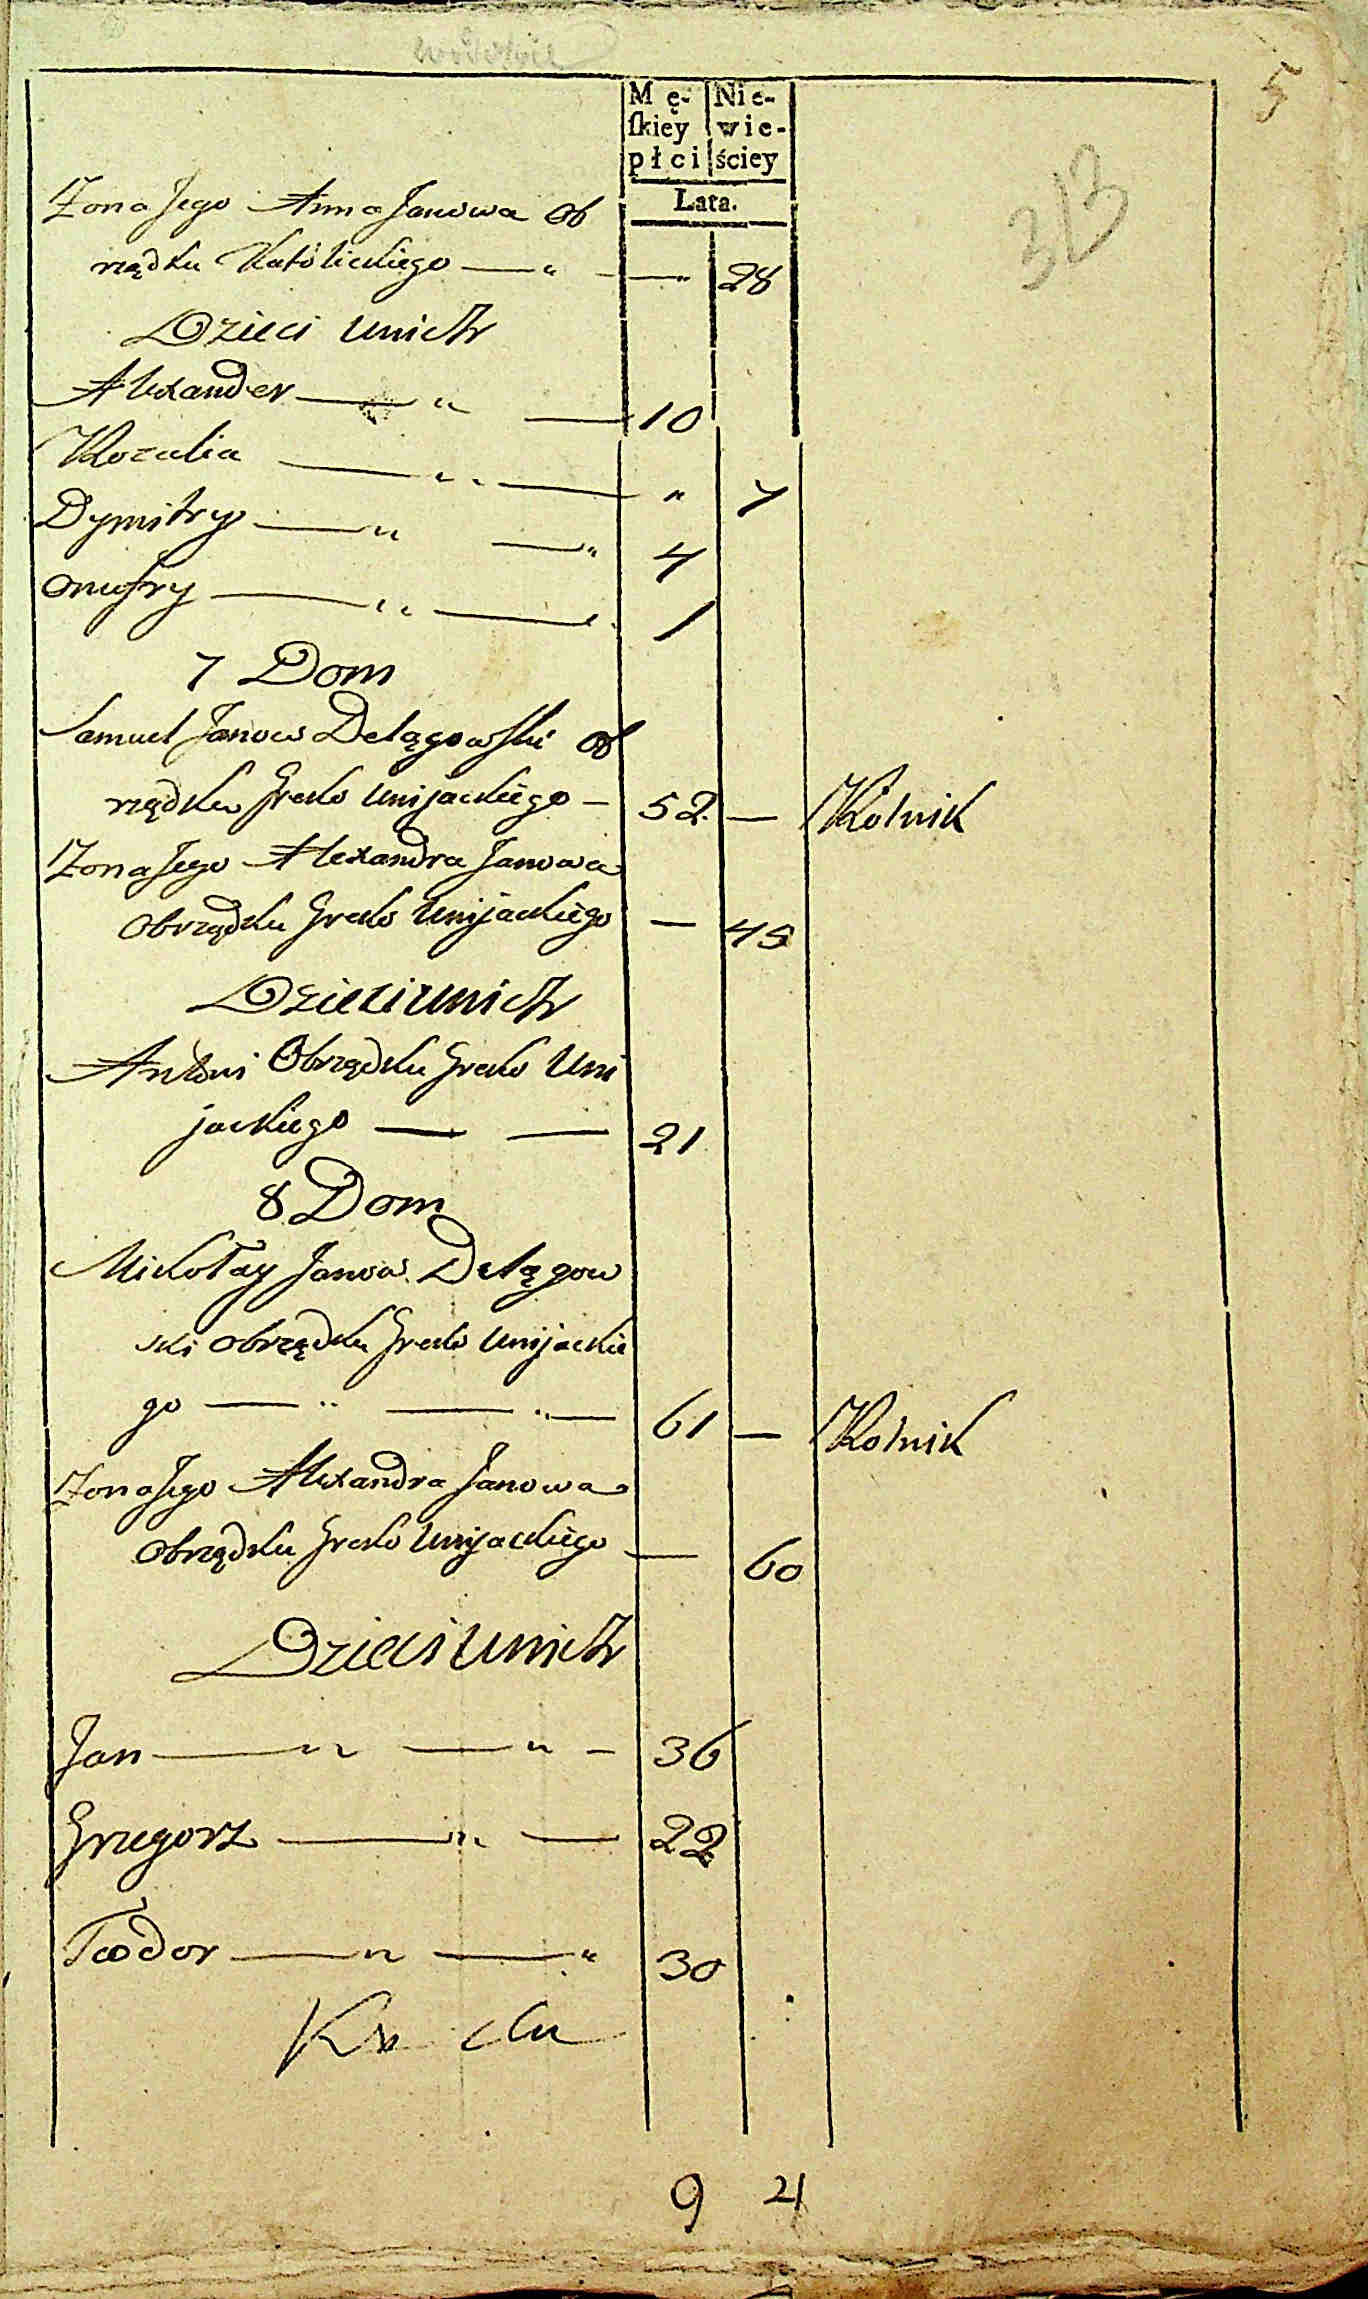 5
Mę- Nie-
skiey wie-
płci ściey
Lata.
313
Żona Jego Anna Janowa Ob
rządku Katolickiego — " — — " 28
Dzieci unich
Alexander — " — 10
Rozalia — " — " 7
Dymitry — " — " 4
Onufry — " — " 1
7 Dom
Samuel Janow Delągowski Ob
rządku Greko Unijackiego — 52 — Rolnik
Żona Jego Alexandra Janowa
Obrządku Greko Unijackiego — 45
Dzieci unich
Antoni Obrządku Greko Uni
jackiego — — 21
8 Dom
Mikołay Janow Delągow
ski Obrządku Greko Unijackie
go — " — " — 61 — Rolnik
Żona Jego Alexandra Janowa
Obrządku Greko Unijackiego — 60
Dzieci unich
Jan — " — " — 36
Grzegorz — " — 22
Teodor — " — " 30
9 4